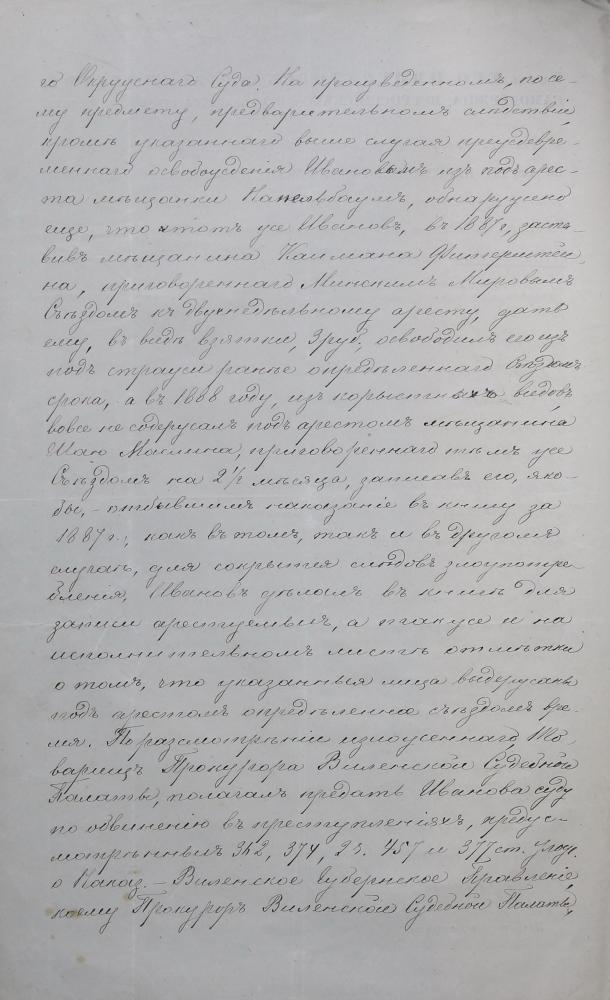 го Окружнаго Суда. На произведенномъ, по се-
му предмету, предварительномъ слѣдствіи,
кромѣ указаннаго выше случая преждевре-
меннаго освобожденія Ивановымъ изъ подъ арес-
та мѣщанки Кательбаумъ, обнаружено
еще, что тотъ же Ивановъ, въ 1887 г., заста-
вивъ мѣщанина Калмана Финтерштей-
на, приговореннаго Минскимъ Мировымъ
Съѣздомъ къ двухнедѣльному аресту, дать
ему, въ видѣ взятки, 3 руб., освободилъ его изъ
подъ стражи ранѣе опредѣленнаго Съѣздомъ
срока, а въ 1888 году, изъ корыстныхъ видовъ
вовсе не содержалъ подъ арестомъ мѣщанина
Шаю Маглина, приговореннаго тѣмъ же
Съѣздомъ на 2½ мѣсяца, записавъ его, яко-
бы, - отбывшимъ наказаніе въ книгу за
1887 г.; какъ въ томъ, такъ и въ другомъ
случаѣ, для сокрытія слѣдовъ злоупотре-
бленія, Ивановъ дѣлалъ въ книгѣ для
записи арестуемыхъ, а также и на
исполнительномъ листѣ отмѣтки
о томъ, что указанныя лица выдержаны
подъ арестомъ опредѣленное съѣздомъ вре-
мя. По разсмотрѣніи изложеннаго, То-
варищъ Прокурора Виленской Судебной
Палаты, полагалъ предать Иванова суду
по обвиненію въ преступленіяхъ, предус-
мотрѣнныхъ 362, 374, 2 ч. 457 и 377 ст. Улож.
о Наказ. — Виленское Губернское Правленіе,
коему Прокуроръ Виленской Судебной Палаты,